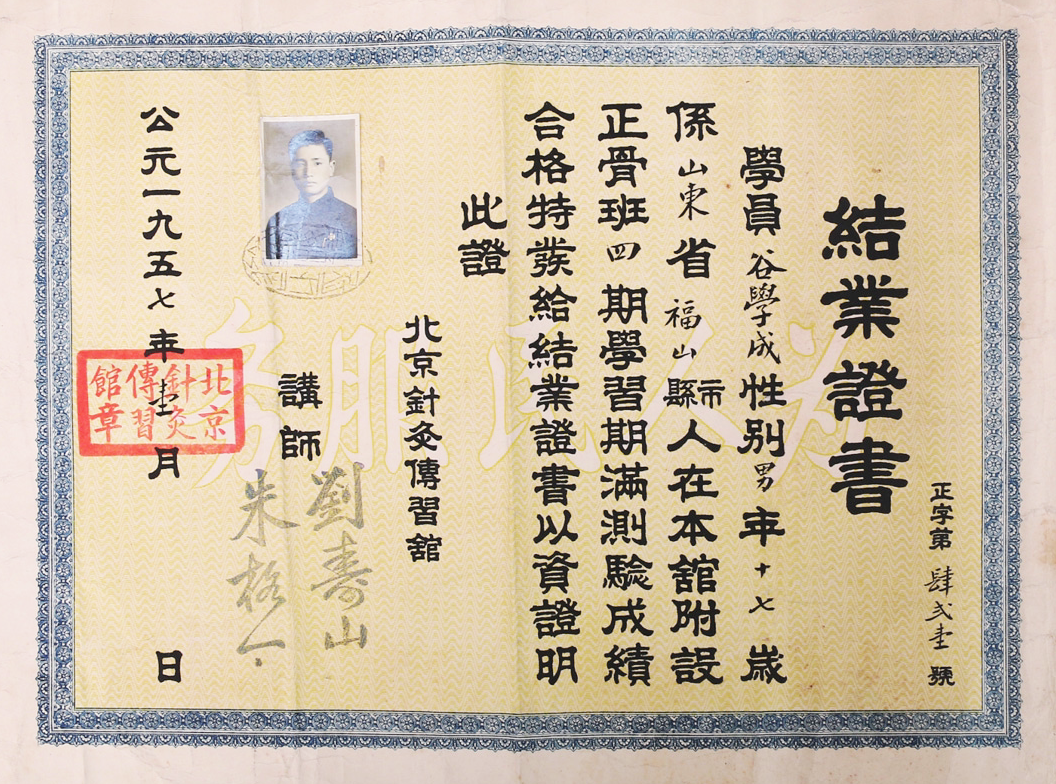 正字第肆弍壹號
結業證書
學員谷學成性别男年十七歲
係山東省福山縣市人在本舘附設
正骨班四期學習期滿測驗成績
合格特發給結業證書以資證明
此證
北京針灸傳習舘
講師
劉壽山
公元一九五七年壹月 日
北京
針灸
傳習
館章
為人民服务